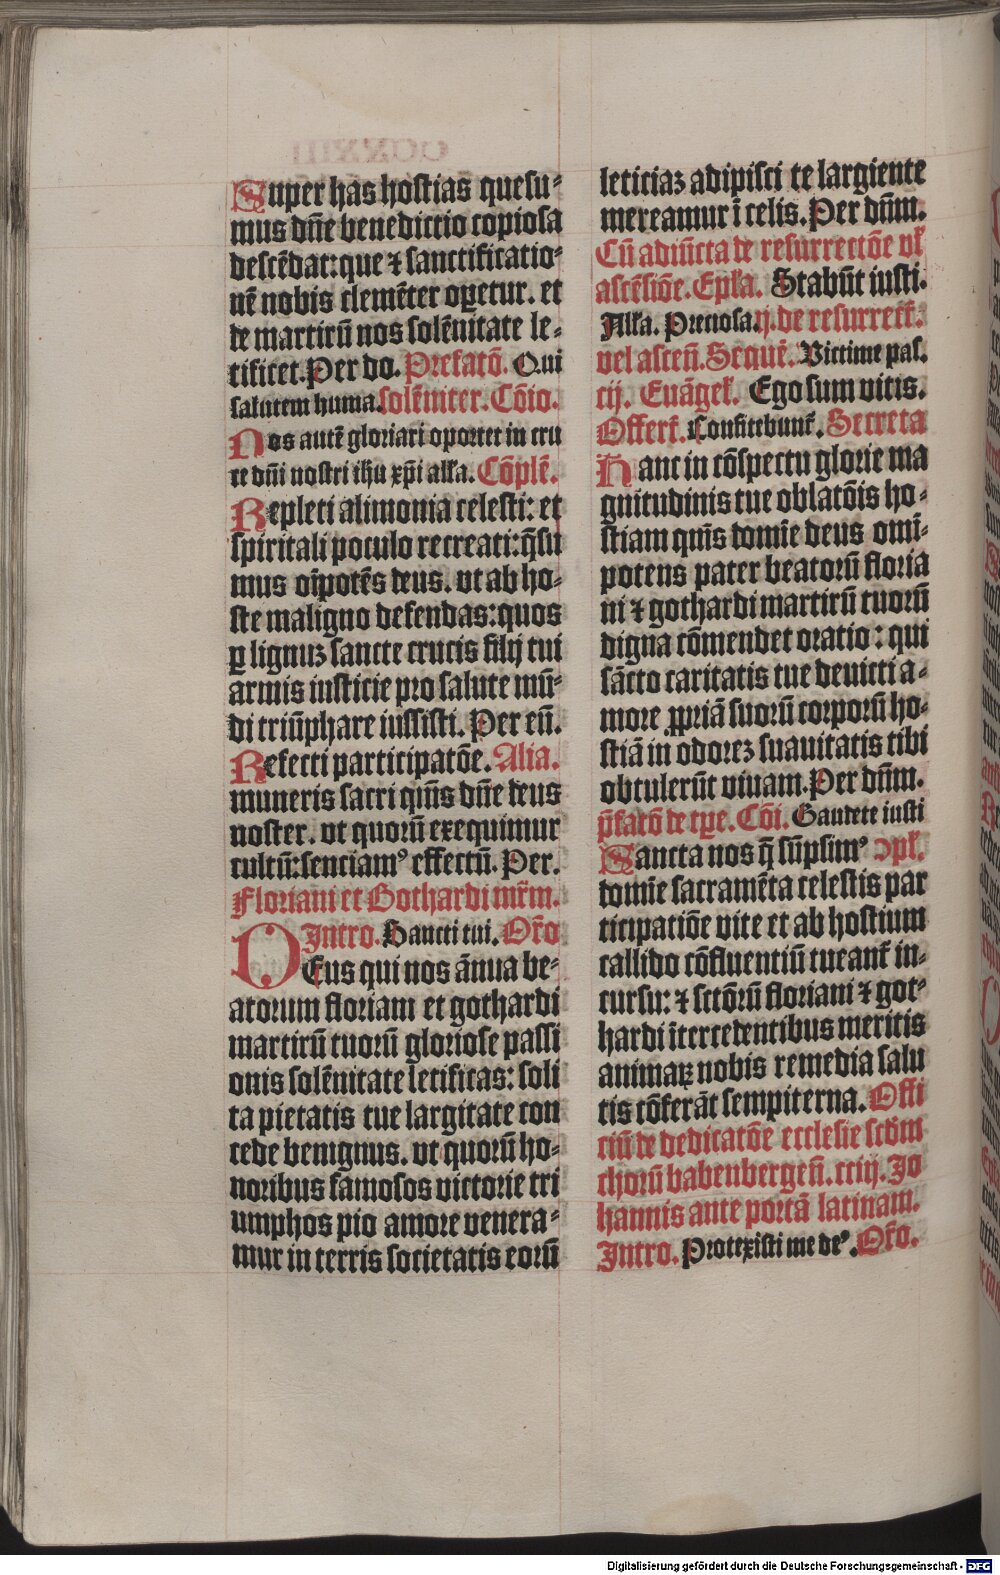 Super has hostias quesu-
mus dn̄e benedictio copiosa
descēdat: que ⁊ sanctificatio-
nē nobis clemēter oꝑetur. et
de martirū nos solēnitate le-
tificet. Per do. Prefatō. Qui
salutem huma. solēniter. Cōio.
Nos autē gloriari oportet in cru
ce dn̄i nostri ihu xp̄i alła. Cōplē.
Repleti alimonia celesti: et
spiritali poculo recreati: q̄su
mus oīpotēs deus. vt ab ho-
ste maligno defendas: quos
ꝑ lignuz sancte crucis filij tui
armis iusticie pro salute mū-
di triūphare iussisti. Per eū.
Refecti participatōe. Alia.
muneris sacri qm̄s dn̄e deus
noster. vt quorū exequimur
cultū: senciamꝰ effectū. Per.
Floriani et Gothardi mr̄m.
Intro. Sancti tui. Or̄o
DEus qui nos ānua be-
atorum floriani et gothardi
martirū tuorū gloriose passi
onis solēnitate letificas: soli
ta pietatis tue largitate con
cede benignus. vt quorū ho-
noribus famosos victorie tri
umphos pio amore venera-
mur in terris societatis eorū
leticiaz adipisci te largiente
mereamur ī celis. Per dn̄m.
Cū adiūcta de resurrectōe vł
ascēsiōe. Epła. Stabūt iusti.
Alła. Preciosa. ij. de resurrect̄.
vel ascen̄. Sequē. Victime pas.
cij. Euāgeł. Ego sum vitis.
Offert̄. Confitebunt̄. Secreta
Hanc in cōspectu glorie ma
gnitudinis tue oblatōis ho-
stiam qm̄s domīe deus omī-
potens pater beatorū floria
ni ⁊ gothardi martirū tuorū
digna cōmendet oratio: qui
sācto caritatis tue deuicti a-
more ꝓpriā suorū corporū ho-
stiā in odorez suauitatis tibi
obtulerūt viuam. Per dn̄m.
p̄fatō de tꝑe. Cōi. Gaudete iusti
Sancta nos q̄ sūpsimꝰ ꝯpł.
domīe sacramēta celestis par
ticipatiōe vite et ab hostium
callido cōfluentiū tueant̄ in-
cursu: ⁊ sctōrū floriani ⁊ got-
hardi ītercedentibus meritis
animaꝝ nobis remedia salu
tis cōferāt sempiterna. Offi
ciū de dedicatōe ecclesie sctōm
chorū babenbergen̄. cciij. Jo
hannis ante portā latinam.
Intro. Protexisti me deꝰ. Or̄o.
Digitalisierung gefördert durch die Deutsche Forschungsgemeinschaft - DFG